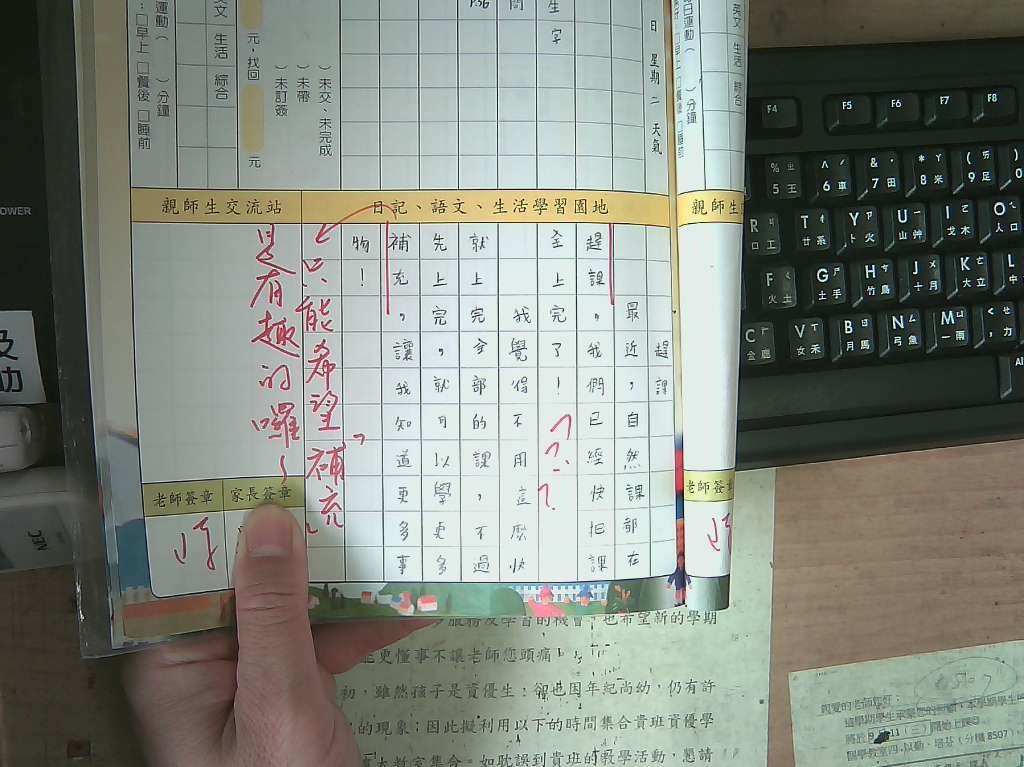 日 星期二 天氣
生字
）未交、未完成
）未帶
）未訂簽
元，找回 元
文 生活 綜合
運動（ ）分鐘
：□早上□餐後□睡前
日記、語文、生活學習園地
趕課
最近，自然課都在
趕課，我們已經快把課
全上完了！
???
我覺得不用這麼快
就上完全部的課，不過
先上完，就可以學更多
補充，讓我知道更多事
物！
只能希望“補充”
是有趣的囉～
親師生交流站
老師簽章
家長簽章
英文 生活 綜合
日運動（ ）分鐘
親師生
老師簽章
服務及學習的機會，也希望新的學期
更懂事不讓老師您頭痛！
初，雖然孩子是資優生；卻也因年紀尚幼，仍有許
的現象；因此擬利用以下的時間集合貴班資優學
集合。如耽誤到貴班的教學活動，懇請
親愛的老師您好：
(分機 8507)
POWER
NEC
F4 F5 F6 F7 F8
% 5 王
^ 6 車
& 7 田
* 8 米
( 9 足
R 口
T 廿
Y 卜
U 山
I 戈
O 人
F 火
G 土
H 竹
J 十
K 大
L 中
C 金
V 女
B 月
N 弓
M 一